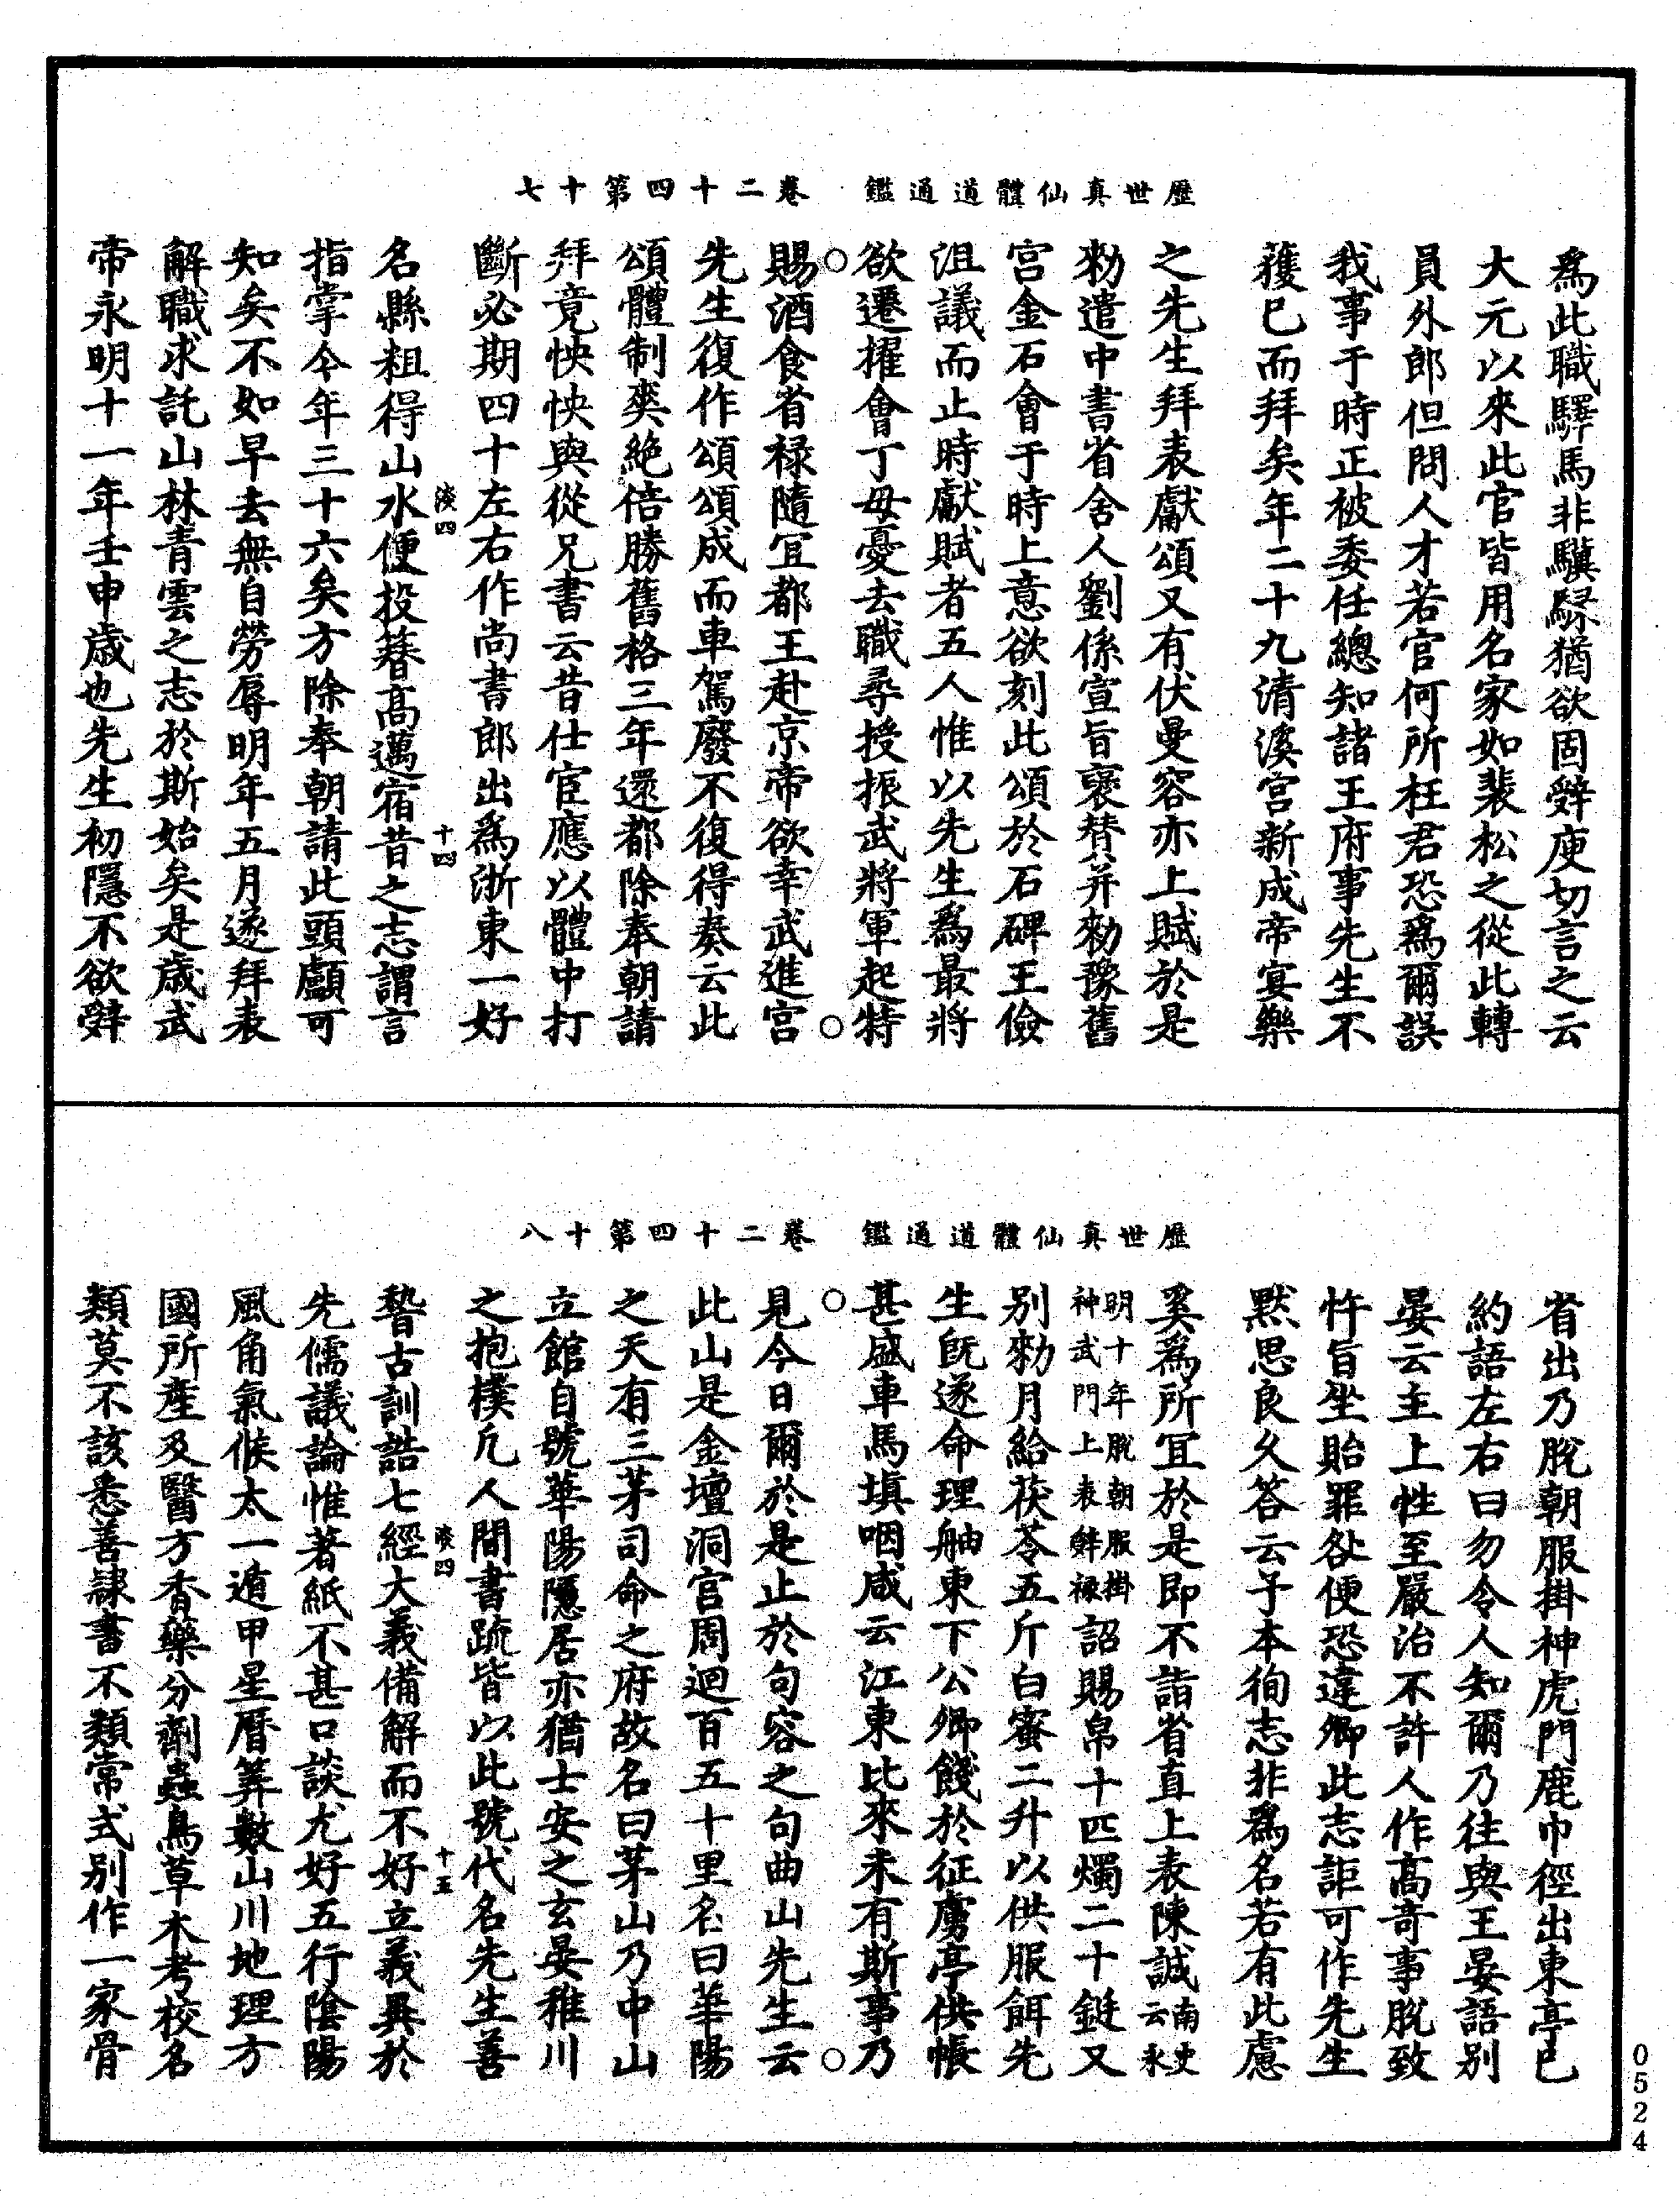 歷世真仙體道通鑑　卷二十四第十七
為此職驛馬非驥騄猶欲固辭庾切言之云
大元以來此官皆用名家如裴松之從此轉
員外郎但問人才若官何所枉君恐為爾誤
我事于時正被委任總知諸王府事先生不
獲已而拜矣年二十九清溪宮新成帝宴樂
之先生拜表獻頌又有伏曼容亦上賦於是
勑遣中書省舍人劉係宣旨褒替并勑豫舊
宮金石會于時上意欲刻此頌於石碑王儉
沮議而止時獻賦者五人惟以先生為最將
欲遷擢會丁母憂去職尋授振武將軍起特
賜酒食省祿隨宜都王赴京帝欲幸武進宮
先生復作頌頌成而車駕廢不復得奏云此
頌體制爽絕倍勝舊格三年還都除奉朝請
拜竟怏怏與從兄書云昔仕宦應以體中打
斷必期四十左右作尚書郎出為浙東一好
淡四　十四
名縣粗得山水便投簪高邁宿昔之志謂言
指掌今年三十六矣方除奉朝請此頭顱可
知矣不如早去無自勞辱明年五月遂拜表
解職求託山林青雲之志於斯始矣是歲武
帝永明十一年壬申歲也先生初隱不欲辭
歷世真仙體道通鑑　卷二十四第十八
省出乃脫朝服掛神虎門鹿巾徑出東亭已
約語左右曰勿令人知爾乃往與王晏語別
晏云主上性至嚴治不許人作高奇事脫致
忤旨坐貽罪咎便恐違卿此志詎可作先生
默思良久答云予本徇志非為名若有此慮
奚為所宜於是即不詣省直上表陳誠南史云永
明十年脫朝服掛神武門上表辭祿詔賜帛十匹燭二十鋌又
別勑月給茯苓五斤白蜜二升以供服餌先
生旣遂命理舳東下公卿餞於征虜亭供帳
甚盛車馬填咽咸云江東比來未有斯事乃
見今日爾於是止於句容之句曲山先生云
此山是金壇洞宮周迴百五十里名曰華陽
之天有三茅司命之府故名曰茅山乃中山
立館自號華陽隱居亦猶士安之玄晏稚川
之抱樸凡人間書疏皆以此號代名先生善
淡四　十五
稽古訓誥七經大義備解而不好立義異於
先儒議論惟著紙不甚口談尤好五行陰陽
風角氣候太一遁甲星曆筭數山川地理方
國所產及醫方香藥分劑蟲鳥草木考校名
類莫不該悉善隷書不類常式別作一家骨
0524